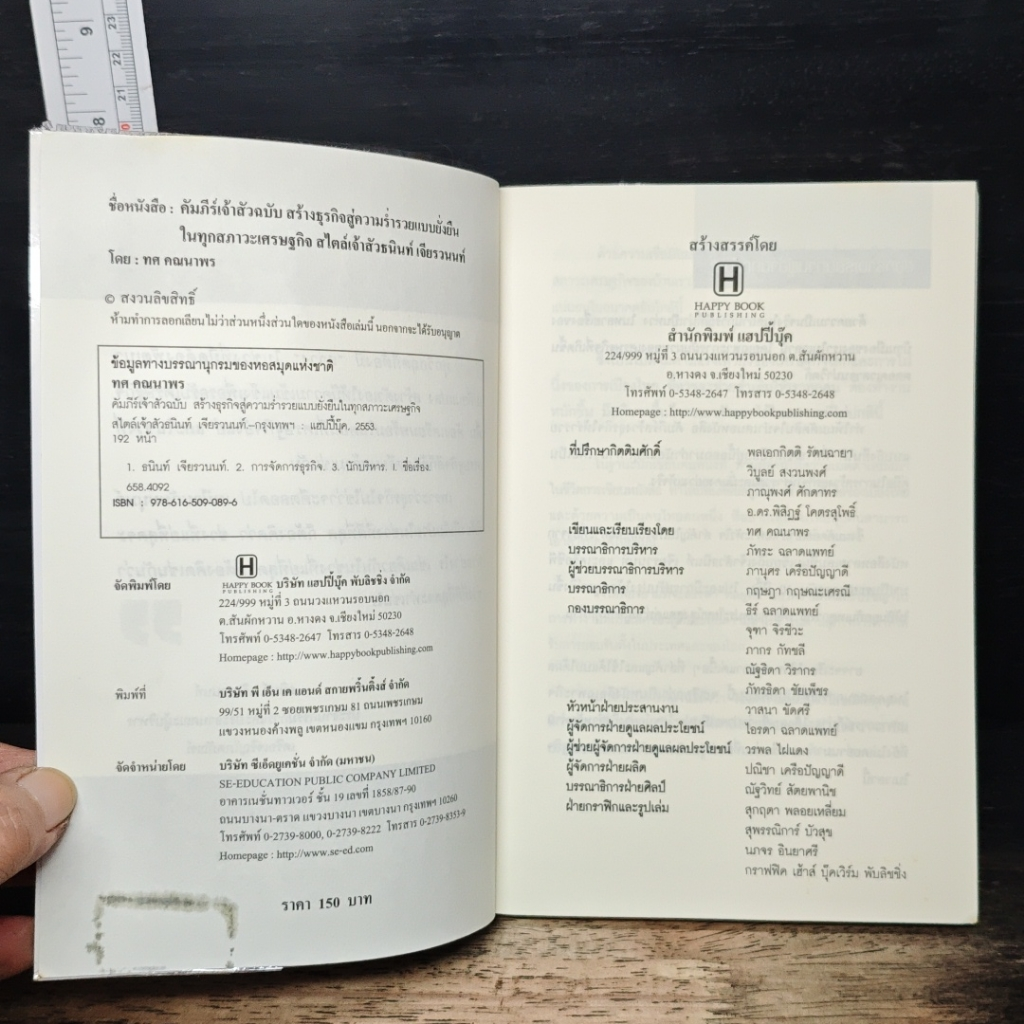 9
8
23
22
21
ชื่อหนังสือ : คัมภีร์เจ้าสัวฉบับ สร้างธุรกิจสู่ความร่ำรวยแบบยั่งยืน
ในทุกสภาวะเศรษฐกิจ สไตล์เจ้าสัวธนินท์ เจียรวนนท์
โดย : ทศ คณนาพร
© สงวนลิขสิทธิ์
ห้ามทำการลอกเลียนไม่ว่าส่วนหนึ่งส่วนใดของหนังสือเล่มนี้ นอกจากจะได้รับอนุญาต
ข้อมูลทางบรรณานุกรมของหอสมุดแห่งชาติ
ทศ คณนาพร
คัมภีร์เจ้าสัวฉบับ สร้างธุรกิจสู่ความร่ำรวยแบบยั่งยืนในทุกสภาวะเศรษฐกิจ
สไตล์เจ้าสัวธนินท์ เจียรวนนท์.--กรุงเทพฯ : แฮปปี้บุ๊ค, 2553.
192 หน้า
1. ธนินท์ เจียรวนนท์. 2. การจัดการธุรกิจ. 3. นักบริหาร. I. ชื่อเรื่อง.
658.4092
ISBN : 978-616-509-089-6
จัดพิมพ์โดย
H
HAPPY BOOK
PUBLISHING
บริษัท แฮปปี้บุ๊ค พับลิชชิง จำกัด
224/999 หมู่ที่ 3 ถนนวงแหวนรอบนอก
ต.สันผักหวาน อ.หางดง จ.เชียงใหม่ 50230
โทรศัพท์ 0-5348-2647 โทรสาร 0-5348-2648
Homepage : http://www.happybookpublishing.com
พิมพ์ที่ บริษัท พี เอ็น เค แอนด์ สกายพริ้นติ้งส์ จำกัด
99/51 หมู่ที่ 2 ซอยเพชรเกษม 81 ถนนเพชรเกษม
แขวงหนองค้างพลู เขตหนองแขม กรุงเทพฯ 10160
จัดจำหน่ายโดย บริษัท ซีเอ็ดยูเคชั่น จำกัด (มหาชน)
SE-EDUCATION PUBLIC COMPANY LIMITED
อาคารเนชั่นทาวเวอร์ ชั้น 19 เลขที่ 1858/87-90
ถนนบางนา-ตราด แขวงบางนา เขตบางนา กรุงเทพฯ 10260
โทรศัพท์ 0-2739-8000, 0-2739-8222 โทรสาร 0-2739-8353-9
Homepage : http://www.se-ed.com
ราคา 150 บาท
สร้างสรรค์โดย
H
HAPPY BOOK
PUBLISHING
สำนักพิมพ์ แฮปปี้บุ๊ค
224/999 หมู่ที่ 3 ถนนวงแหวนรอบนอก ต.สันผักหวาน
อ.หางดง จ.เชียงใหม่ 50230
โทรศัพท์ 0-5348-2647 โทรสาร 0-5348-2648
Homepage : http://www.happybookpublishing.com
ที่ปรึกษากิตติมศักดิ์ พลเอกกิตติ รัตนฉายา
วิบูลย์ สงวนพงศ์
ภาณุพงศ์ ศักดาทร
อ.ดร.พิสิฏฐ์ โคตรสุโพธิ์
เขียนและเรียบเรียงโดย ทศ คณนาพร
บรรณาธิการบริหาร ภัทระ ฉลาดแพทย์
ผู้ช่วยบรรณาธิการบริหาร ภานุศร เครือปัญญาดี
บรรณาธิการ กฤษฎา กฤษณะเศรณี
กองบรรณาธิการ ธีร์ ฉลาดแพทย์
จุฑา จิรชีวะ
ภากร กัทชลี
ณัฐธิดา วิรากร
ภัทรธิดา ชัยเพ็ชร
หัวหน้าฝ่ายประสานงาน วาสนา ขัดศรี
ผู้จัดการฝ่ายดูแลผลประโยชน์ ไอรดา ฉลาดแพทย์
ผู้ช่วยผู้จัดการฝ่ายดูแลผลประโยชน์ วรพล ไฝแดง
ผู้จัดการฝ่ายผลิต ปณิชา เครือปัญญาดี
บรรณาธิการฝ่ายศิลป์ ณัฐวิทย์ สัตยพานิช
ฝ่ายกราฟิกและรูปเล่ม สุกฤตา พลอยเหลี่ยม
สุพรรณิการ์ บัวสุข
นภจร อินยาศรี
กราฟฟิค เฮ้าส์ บุ๊คเวิร์ม พับลิชชิ่ง